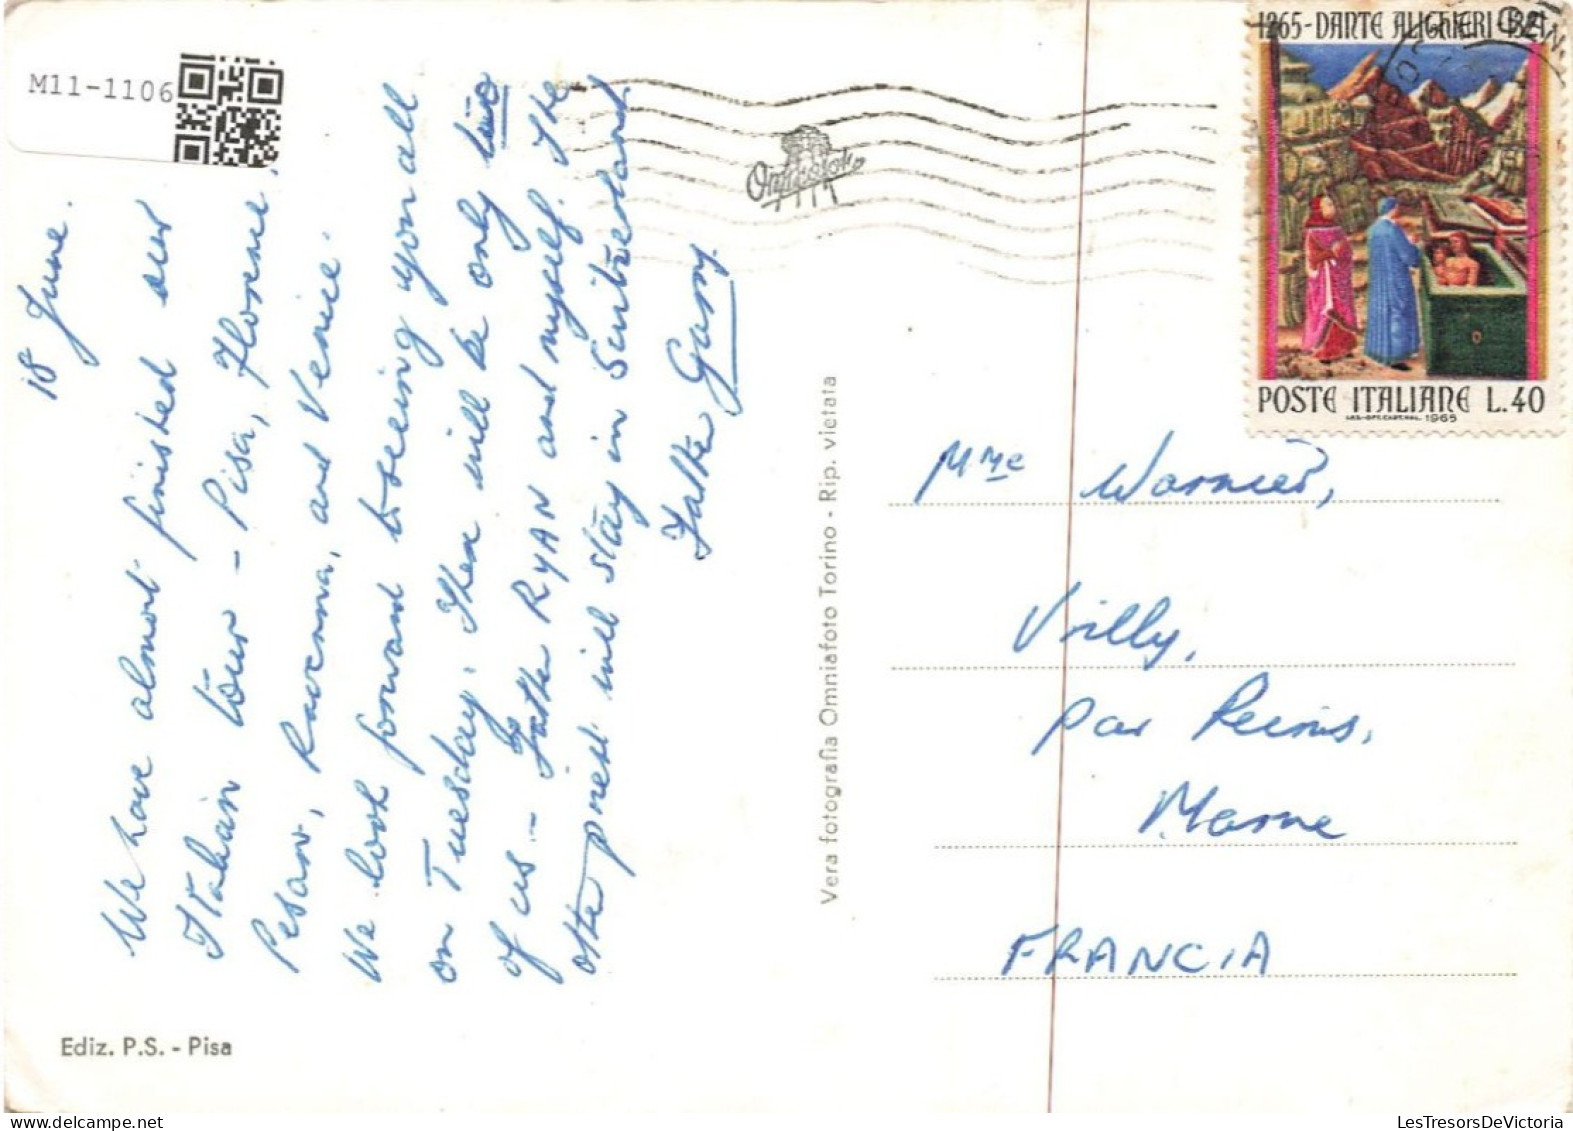 M11-1106
18 June.
We have almost finished our
Italian tour - Pisa, Florence,
Pesaro, Ravenna, and Venice.
We look forward to seeing you all
on Tuesday. There will be only two
of us - Father RYAN and myself. The
other priest will stay in Switzerland
Father Gary
Ediz. P.S. - Pisa
Vera fotografia Omniafoto Torino - Rip. vietata
1265-DANTE ALIGHIERI-1321
POSTE ITALIANE L.40
1965
Mme Warnier,
Vrilly,
par Reims,
Marne
FRANCIA
LesTresorsDeVictoria.com